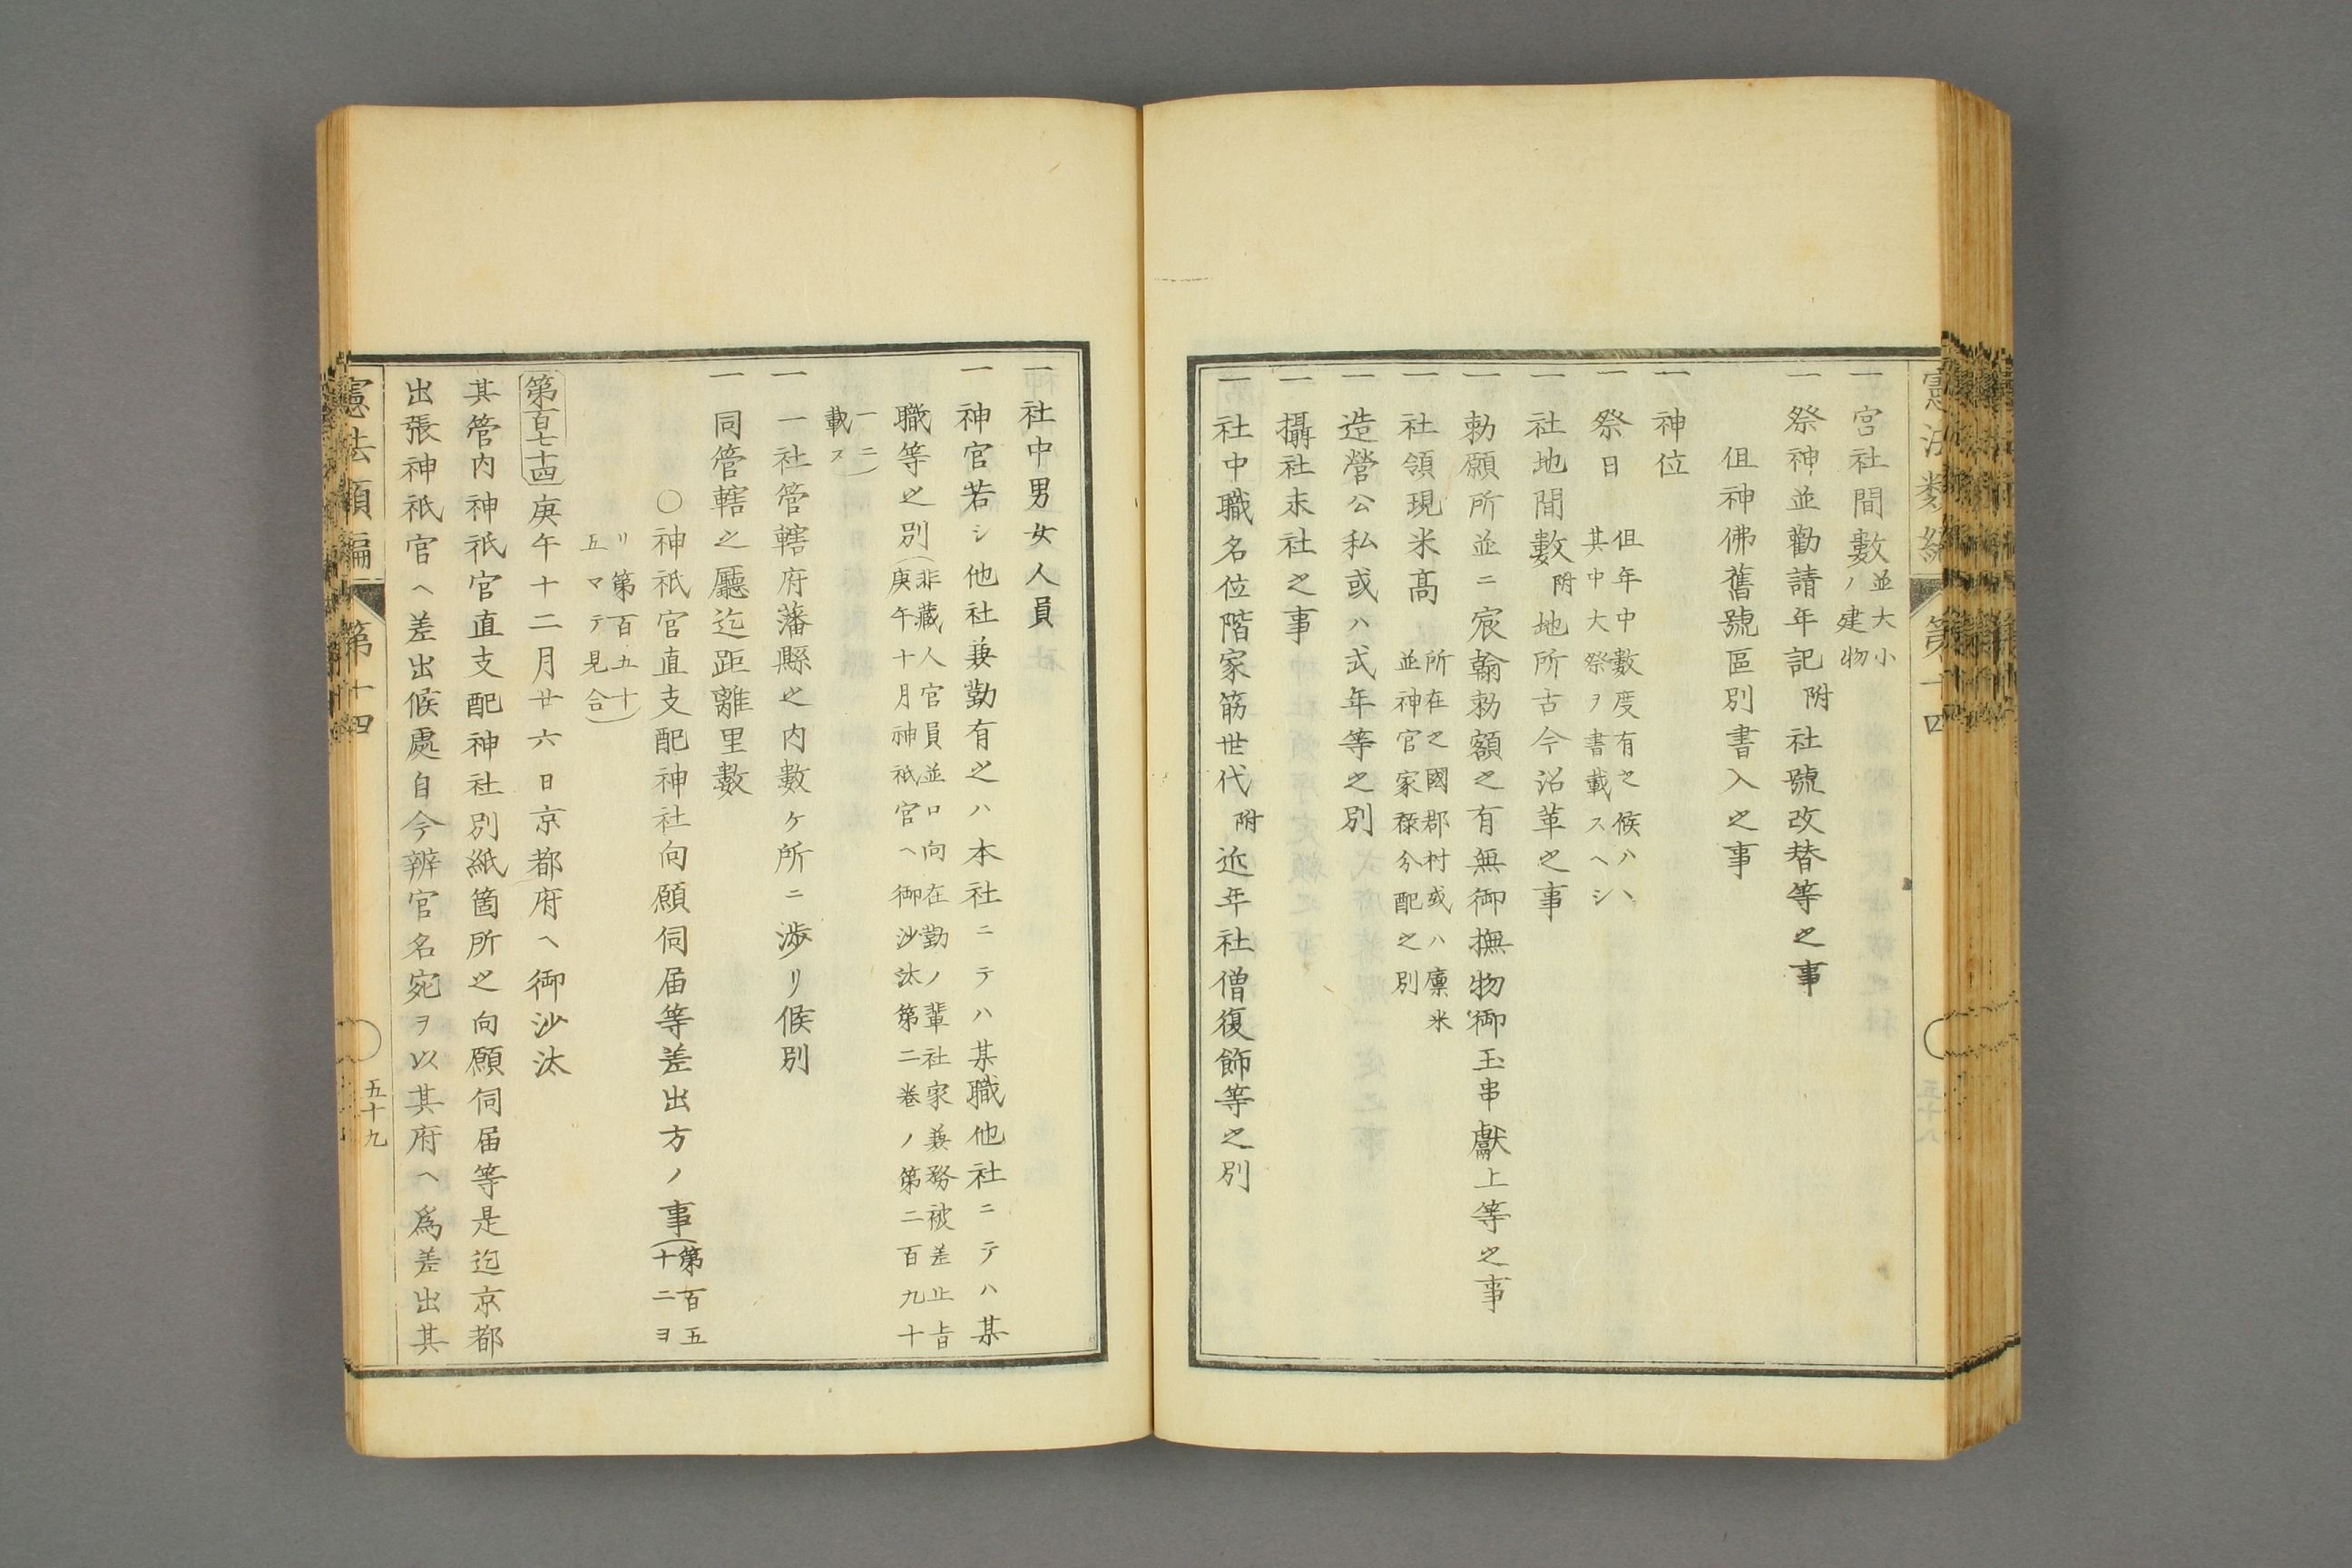 憲法類編 第十四
一宮社間數並大小ノ建物
一祭神並勸請年記附社號改替等之事
但神佛舊號區別書入之事
一神位
一祭日但年中數度有之候ハヽ其中大祭ヲ書載スヘシ
一社地間數附地所古今沿革之事
一勅願所並ニ宸翰勅額之有無御撫物御玉串獻上等之事
一社領現米高所在之國郡村或ハ廩米並神官家祿分配之別
一造營公私或ハ式年等之別
一攝社末社之事
一社中職名位階家筋世代附近年社僧復飾等之別
一社中男女人員
一神官若シ他社兼勤有之ハ本社ニテハ某職他社ニテハ某
職等之別(非藏人官員並口向在勤ノ輩社家兼務被差止旨庚午十月神祇官ヘ御沙汰第二卷ノ第二百九十
一二)載ス
一一社管轄府藩縣之内數ケ所ニ渉リ候別
一同管轄之廳迄距離里數
○神祇官直支配神社向願伺届等差出方ノ事(第百五十二ヲ
リ第百五十五マテ見合)
第百七十四庚午十二月廿六日京都府ヘ御沙汰
其管内神祇官直支配神社別紙箇所之向願伺届等是迄京都
出張神祇官ヘ差出候處自今辨官名宛ヲ以其府ヘ爲差出其
憲法類編 第十四 五十九